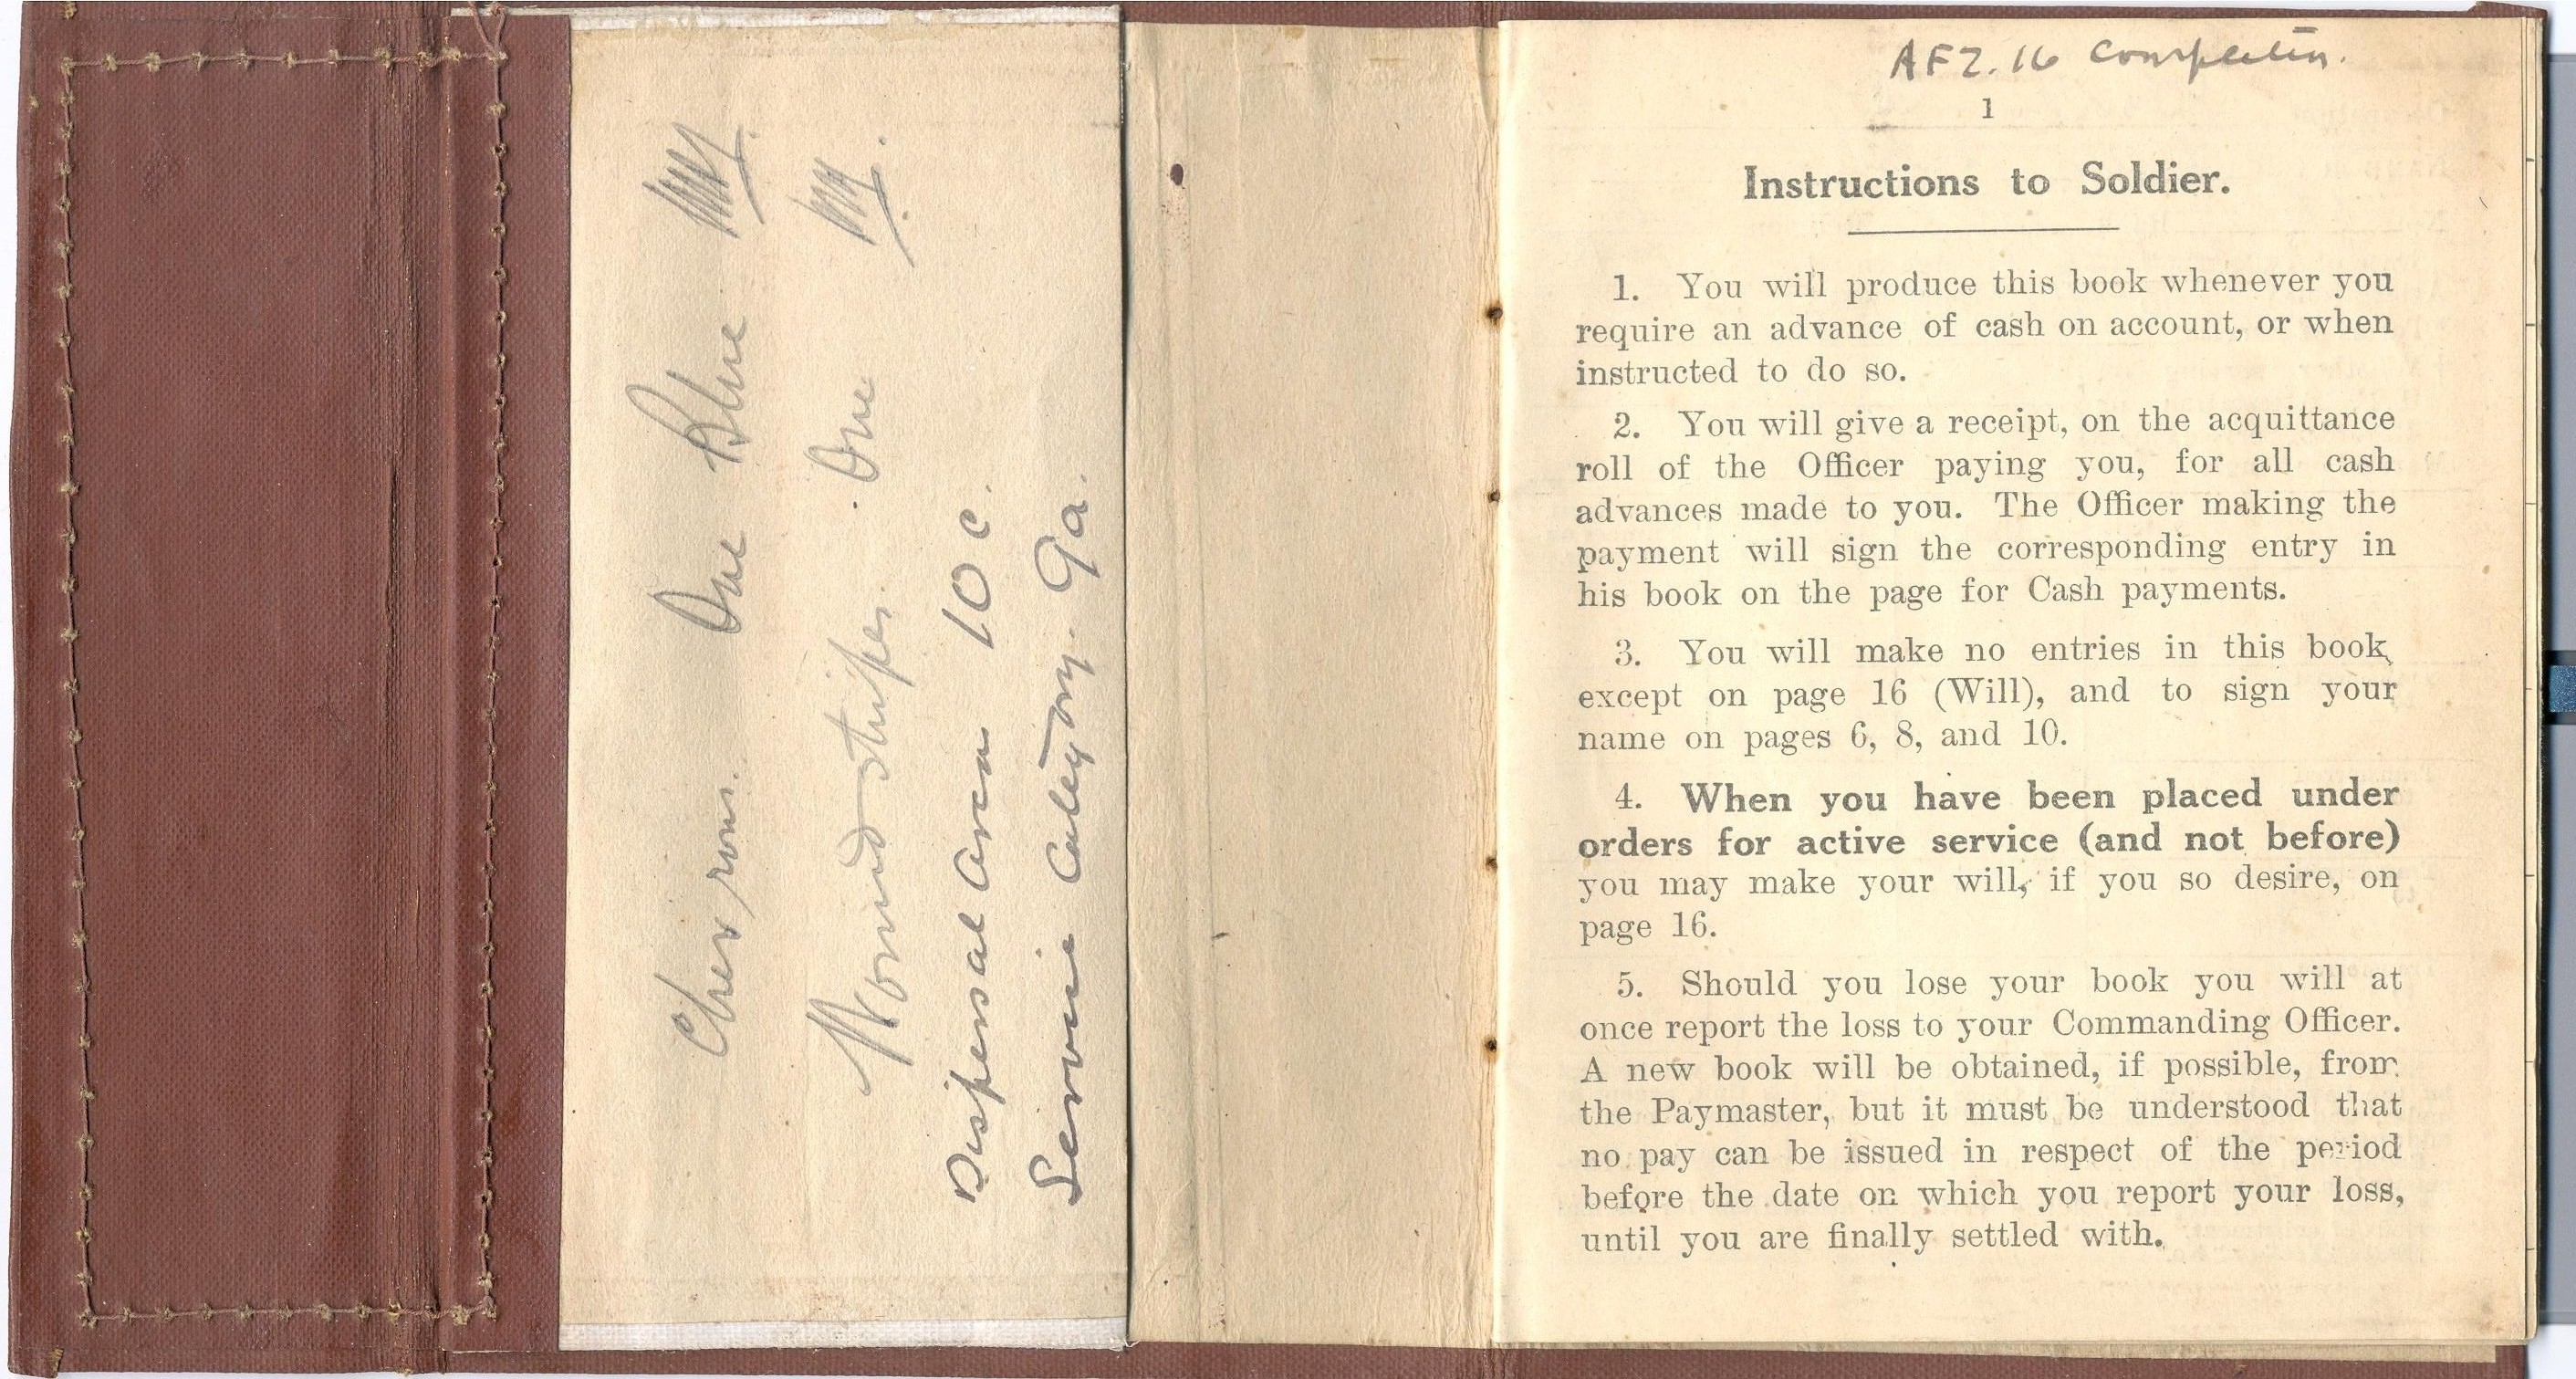 Chevrons. One Blue
Wound stripes. One
Dispersal Area 10 c.
Service Category. 9a.
AFZ.16 Completed.
1
Instructions to Soldier.
1. You will produce this book whenever you
require an advance of cash on account, or when
instructed to do so.
2. You will give a receipt, on the acquittance
roll of the Officer paying you, for all cash
advances made to you. The Officer making the
payment will sign the corresponding entry in
his book on the page for Cash payments.
3. You will make no entries in this book,
except on page 16 (Will), and to sign your
name on pages 6, 8, and 10.
4. When you have been placed under
orders for active service (and not before)
you may make your will, if you so desire, on
page 16.
5. Should you lose your book you will at
once report the loss to your Commanding Officer.
A new book will be obtained, if possible, from
the Paymaster, but it must be understood that
no pay can be issued in respect of the period
before the date on which you report your loss,
until you are finally settled with.